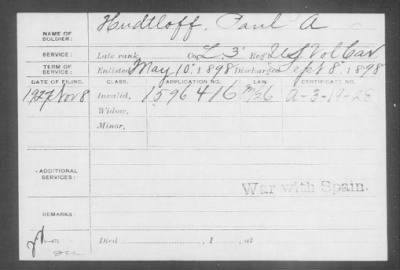 NAME OF SOLDIER: Hudtloff, Paul A
SERVICE: Late rank, Co. L. 3" Reg't U.S. Vol Cav
TERM OF SERVICE: Enlisted May 10", 1898 Discharged Sept 8", 1898
DATE OF FILING. CLASS. APPLICATION NO. LAW. CERTIFICATE NO.
1927 Nov 8 Invalid, 1596416 A-3-19-28
Widow,
Minor,
ADDITIONAL SERVICES:
War with Spain.
REMARKS:
Died , 1 , at